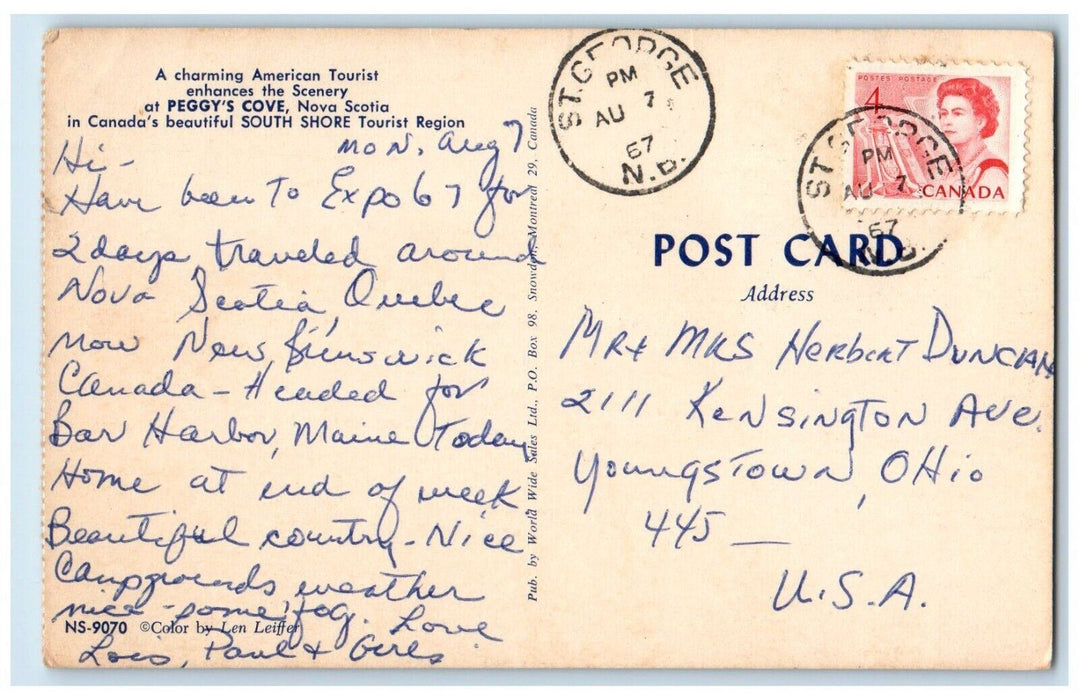 A charming American Tourist
enhances the Scenery
at PEGGY'S COVE, Nova Scotia
in Canada's beautiful SOUTH SHORE Tourist Region
Mon. Aug 7
Hi -
Have been To Expo 67 for
2 days, traveled around
Nova Scotia, Quebec
now New Brunswick
Canada - Headed for
Bar Harbor, Maine Today
Home at end of week
Beautiful country - Nice
Campgrounds weather
nice - some fog. Love
Lois, Paul + Girls
NS-9070 ©Color by Len Leiffer
Pub. by World Wide Sales Ltd., P.O. Box 98, Snowdon, Montreal 29, Canada
ST. GEORGE
PM
AU 7
67
N.B.
POSTES POSTAGE
4
CANADA
ST. GEORGE
PM
AU 7
67
N.B.
POST CARD
Address
Mr + Mrs Herbert Duncan
2111 Kensington Ave.
Youngstown, Ohio
445 __
U.S.A.